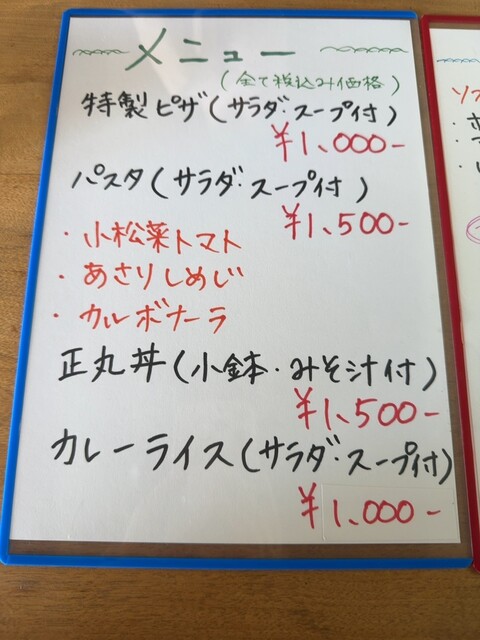 メニュー
(全て税込み価格)
特製ピザ(サラダ・スープ付)
¥1,000-
パスタ(サラダ・スープ付)
¥1,500-
・小松菜トマト
・あさりしめじ
・カルボナーラ
正丸丼(小鉢・みそ汁付)
¥1,500-
カレーライス(サラダ・スープ付)
¥1,000-
ソフ